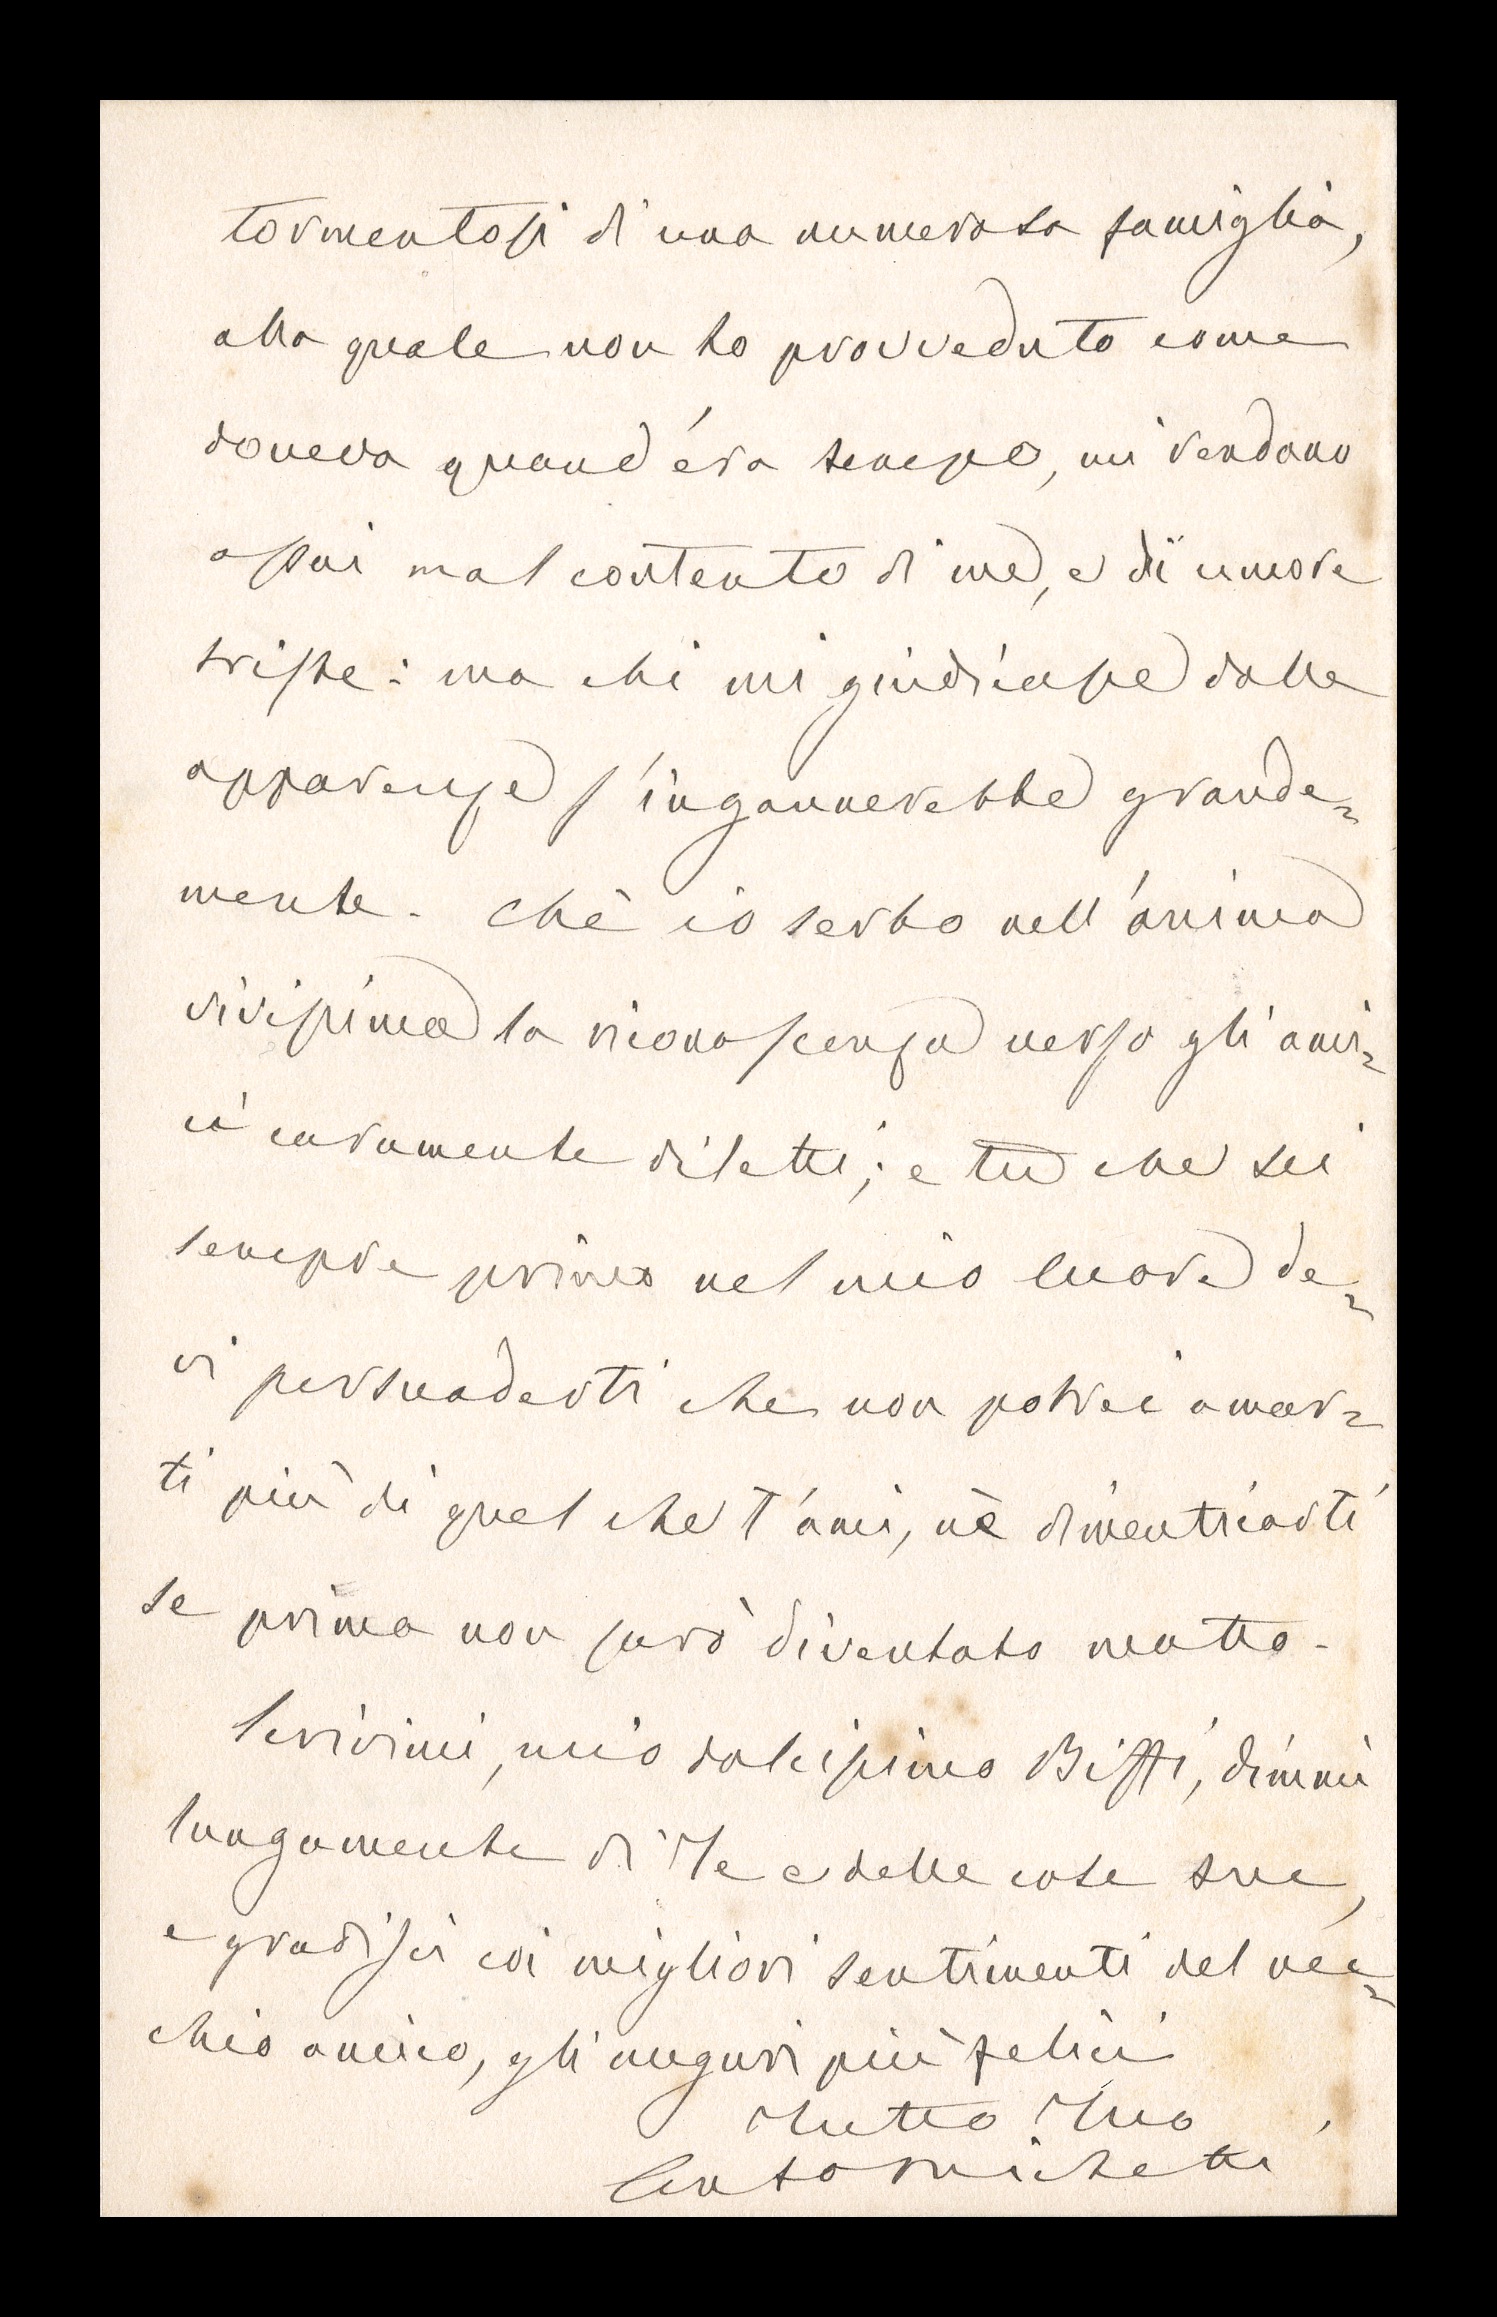 tormentosi di una numerosa famiglia,
alla quale non ho provveduto come
doveva quand'era tempo, mi rendano
assai mal contento di me, e di umore
triste: ma chi mi giudicasse dalle
apparenze s'ingannerebbe grande=
mente. Chè io serbo nell'anima
vivissima la riconoscenza verso gli ami=
ci caramente diletti; e tu che sei
sempre primo nel mio cuore de=
vi persuaderti che non potrei amar=
ti più di quel che t'ami, nè dimenticarti
se prima non sarò diventato matto.
Scrivimi, mio dolcissimo Biffi, dimmi
lungamente di Te e delle cose tue,
e gradisci coi migliori sentimenti del vec=
chio amico, gli auguri più felici
Tutto Tuo